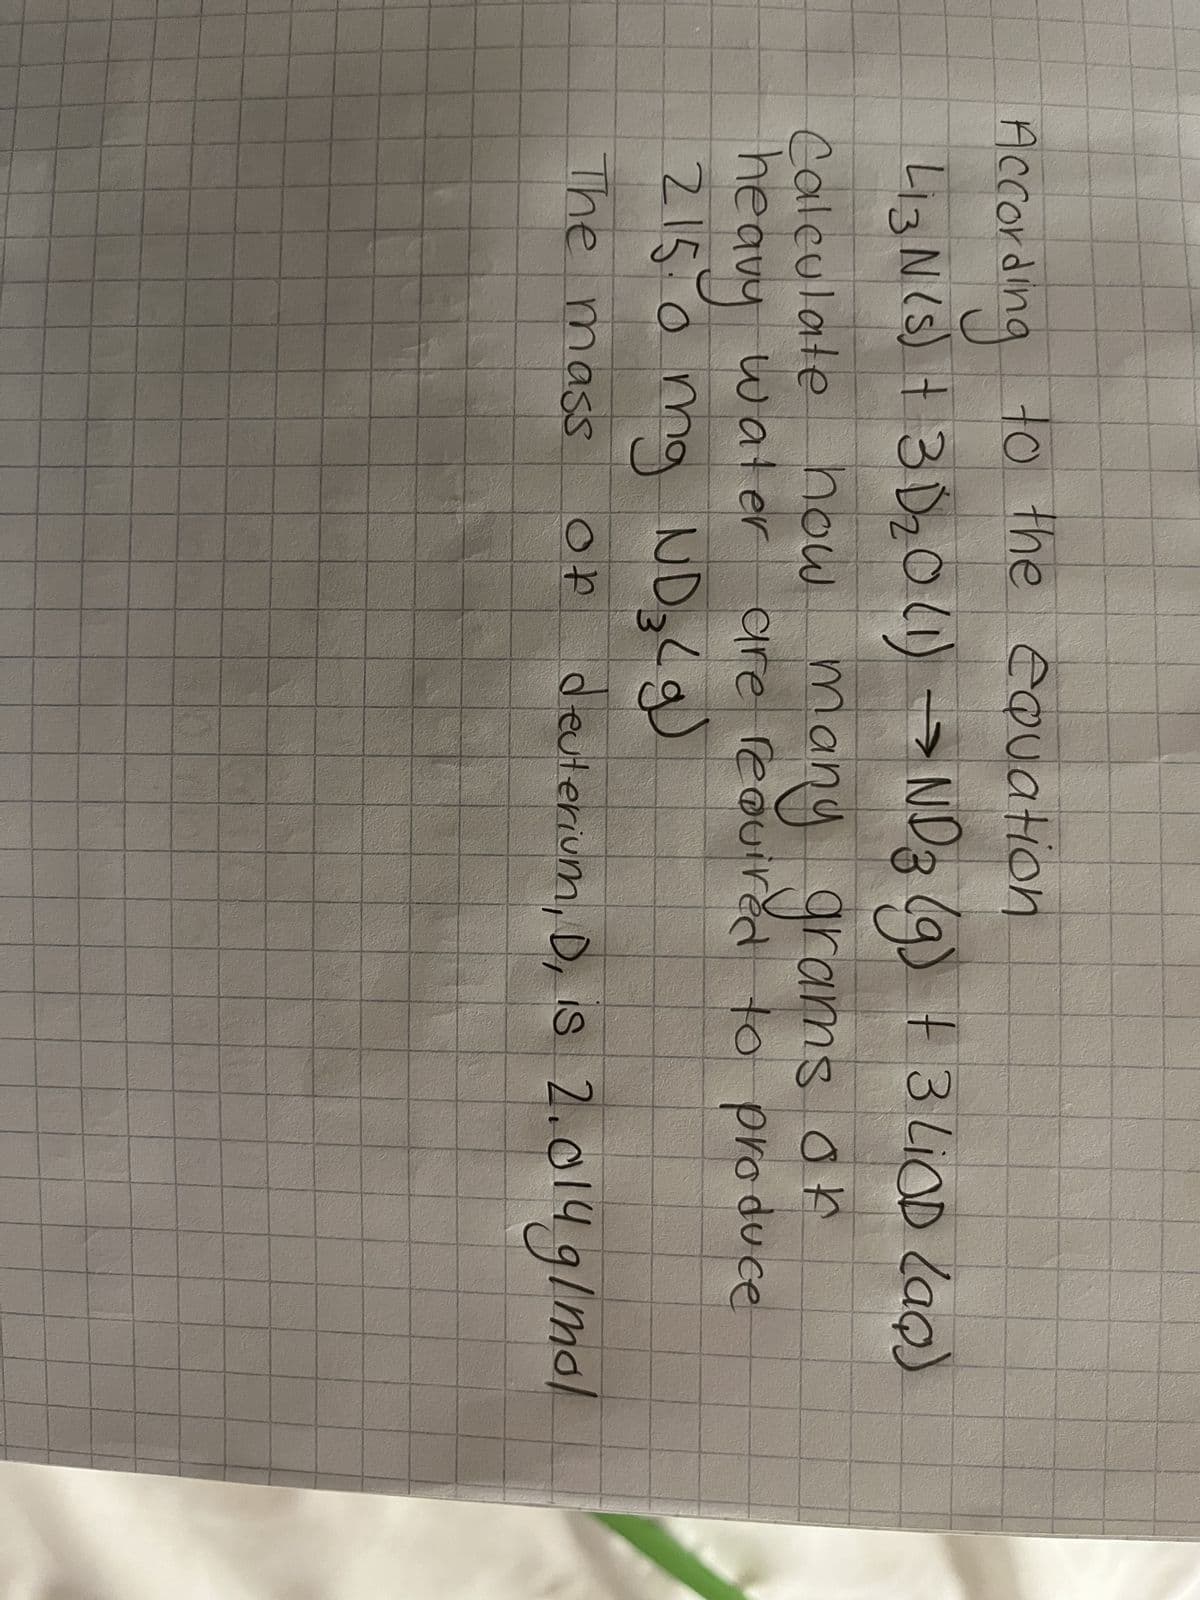 According to the Equation
Li3N(s) + 3D2O(l) → ND3(g) + 3LiOD(aq)
Calculate how many grams of
heavy water are required to produce
215.0 mg ND3(g)
The mass of deuterium, D, is 2.014g/mol